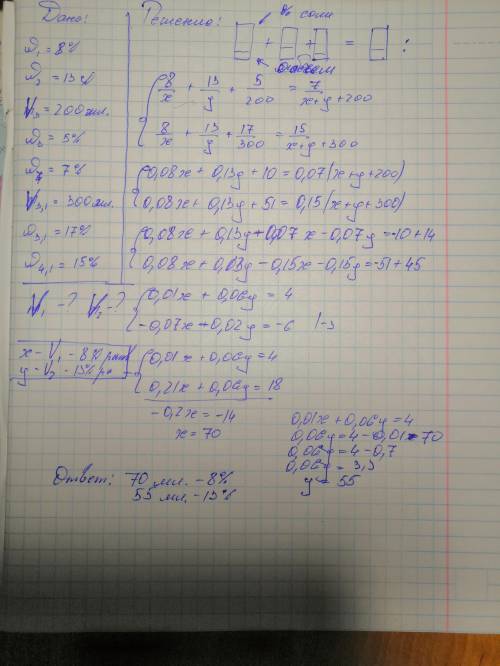 Дано:
ω₁ = 8%
ω₂ = 13%
V₃ = 200 мл.
ω₃ = 5%
ω₄ = 7%
V₃,₁ = 300 мл.
ω₃,₁ = 17%
ω₄,₁ = 15%
V₁ - ? V₂ - ?
x - V₁ - 8% раст
y - V₂ - 13% ра
Решение:
% соли
+ + = :
объем
8/x + 13/y + 5/200 = 7/x+y+200
8/x + 13/y + 17/300 = 15/x+y+300
0,08x + 0,13y + 10 = 0,07(x+y+200)
0,08x + 0,13y + 51 = 0,15(x+y+300)
0,08x + 0,13y - 0,07x - 0,07y = -10 + 14
0,08x + 0,13y - 0,15x - 0,15y = -51 + 45
0,01x + 0,06y = 4
-0,07x - 0,02y = -6 |-3
0,01x + 0,06y = 4
0,21x + 0,06y = 18
-0,2x = -14
x = 70
0,01x + 0,06y = 4
0,06y = 4 - 0,01·70
0,06y = 4 - 0,7
0,06y = 3,3
y = 55
Ответ: 70 мл. - 8%
55 мл. - 13%